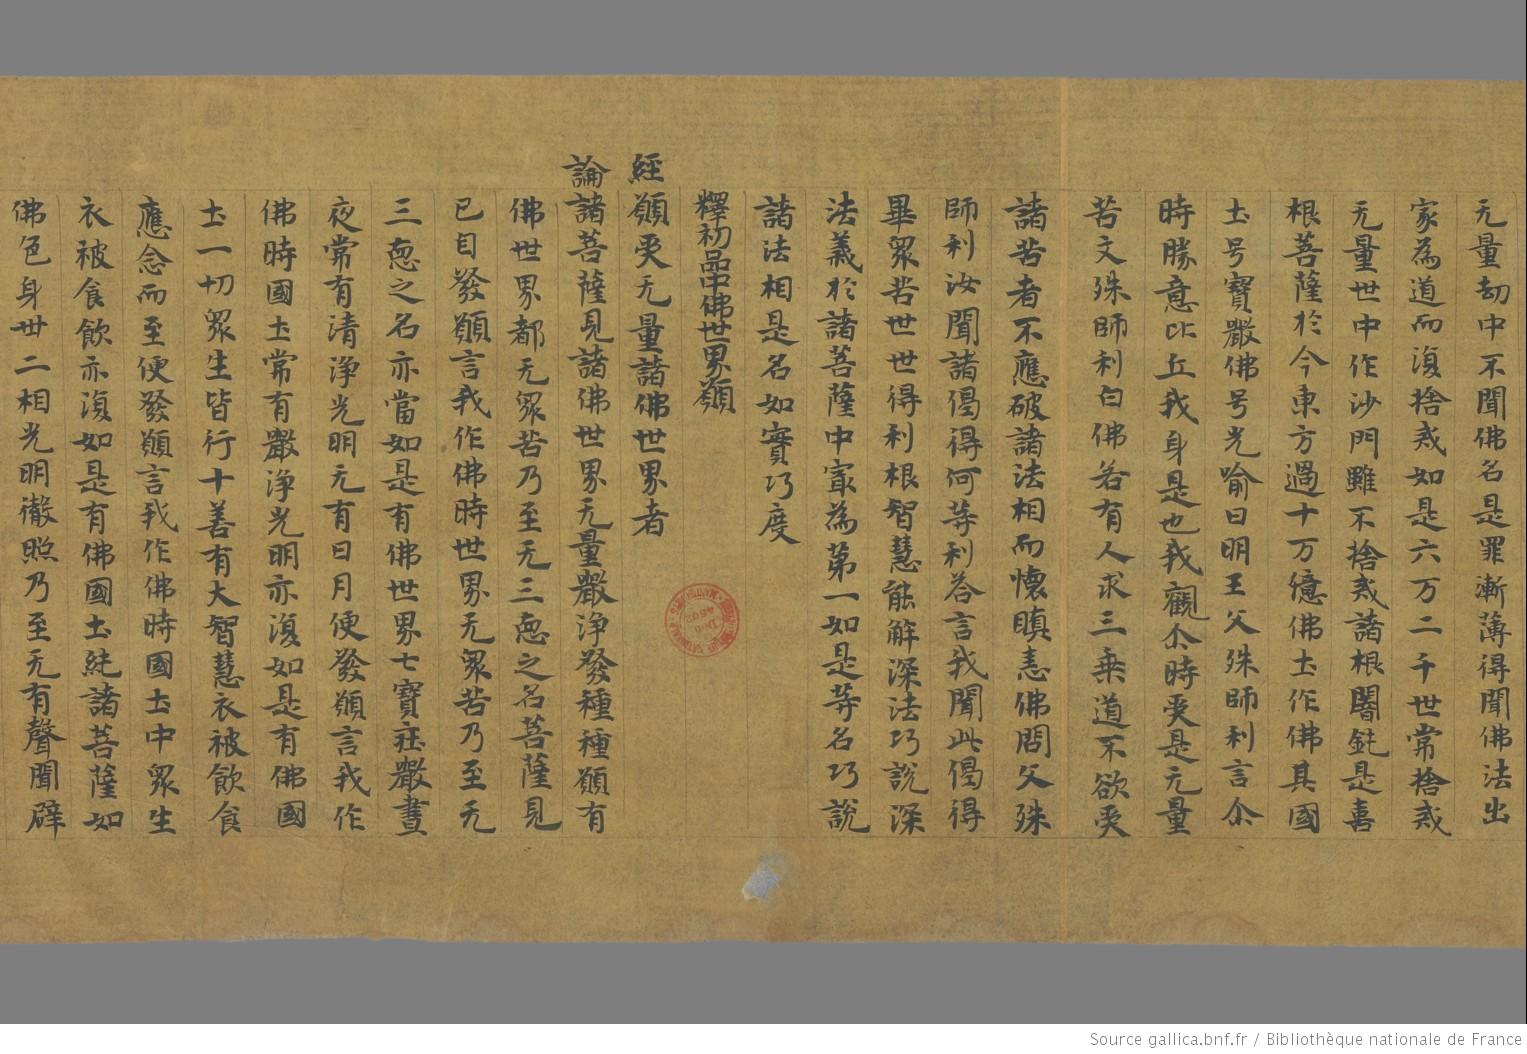 无量劫中不聞佛名是罪漸薄得聞佛法出
家為道而復捨戒如是六万二千世常捨戒
无量世中作沙門雖不捨戒諸根闇鈍是喜
根菩薩於今東方過十万億佛土作佛其國
土号寶嚴佛号光喻日明王父殊師利言尒
時勝意比丘我身是也我觀尒時受是无量
苦文殊師利白佛若有人求三乗道不欲受
諸苦者不應破諸法相而懷瞋恚佛問父殊
師利汝聞諸偈得何等利荅言我聞此偈得
畢眾苦世世得利根智慧能解深法巧說深
法義於諸菩薩中㝡為第一如是等名巧說
諸法相是名如實巧度
釋初品中佛世界願
經 願受无量諸佛世界者
論 諸菩薩見諸佛世界无量嚴淨發種種願有
佛世界都无眾苦乃至无三惡之名菩薩見
已自發願言我作佛時世界无眾苦乃至无
三惡之名亦當如是有佛世界七寶莊嚴晝
夜常有清淨光明无有日月便發願言我作
佛時國土常有嚴淨光明亦復如是有佛國
土一切眾生皆行十善有大智慧衣被飲食
應念而至便發願言我作佛時國土中眾生
衣被食飲亦復如是有佛國土純諸菩薩如
佛色身卅二相光明徹照乃至无有聲聞辟
Source gallica.bnf.fr / Bibliothèque nationale de France